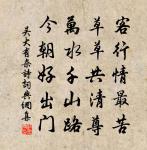 客行情最苦
草草共清尊
萬水千山路
今朝好出門
吳大有詩詞典網集